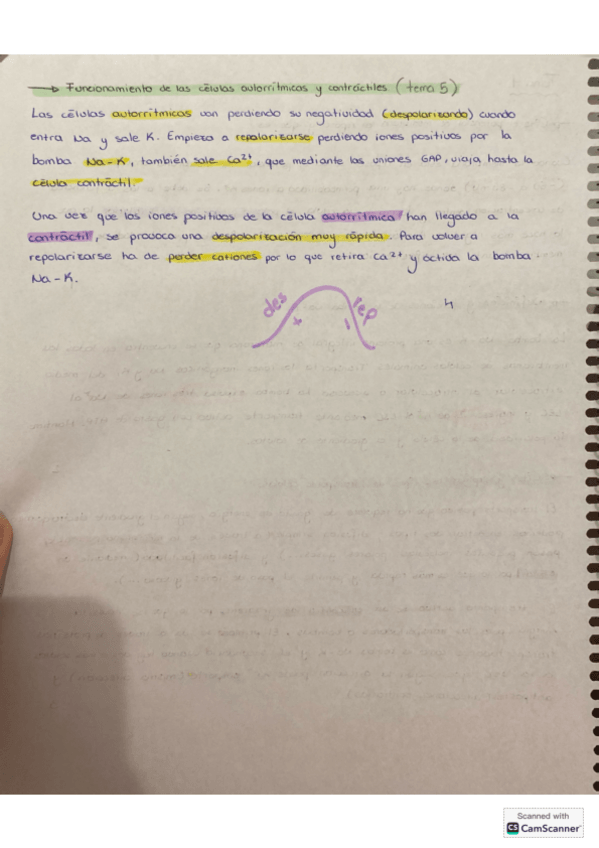 → Funcionamiento de las células autorrítmicas y contráctiles (tema 5)
Las células autorrítmicas van perdiendo su negatividad (despolarizando) cuando
entra Na y sale K. Empieza a repolarizarse perdiendo iones positivos por la
bomba Na-K, también sale Ca²⁺, que mediante las uniones GAP, viaja hasta la
célula contráctil.
Una vez que los iones positivos de la célula autorrítmica han llegado a la
contráctil, se provoca una despolarización muy rápida. Para volver a
repolarizarse ha de perder cationes por lo que retira Ca²⁺ y áctida la bomba
Na-K.
des + - rep
Scanned with
CS CamScanner